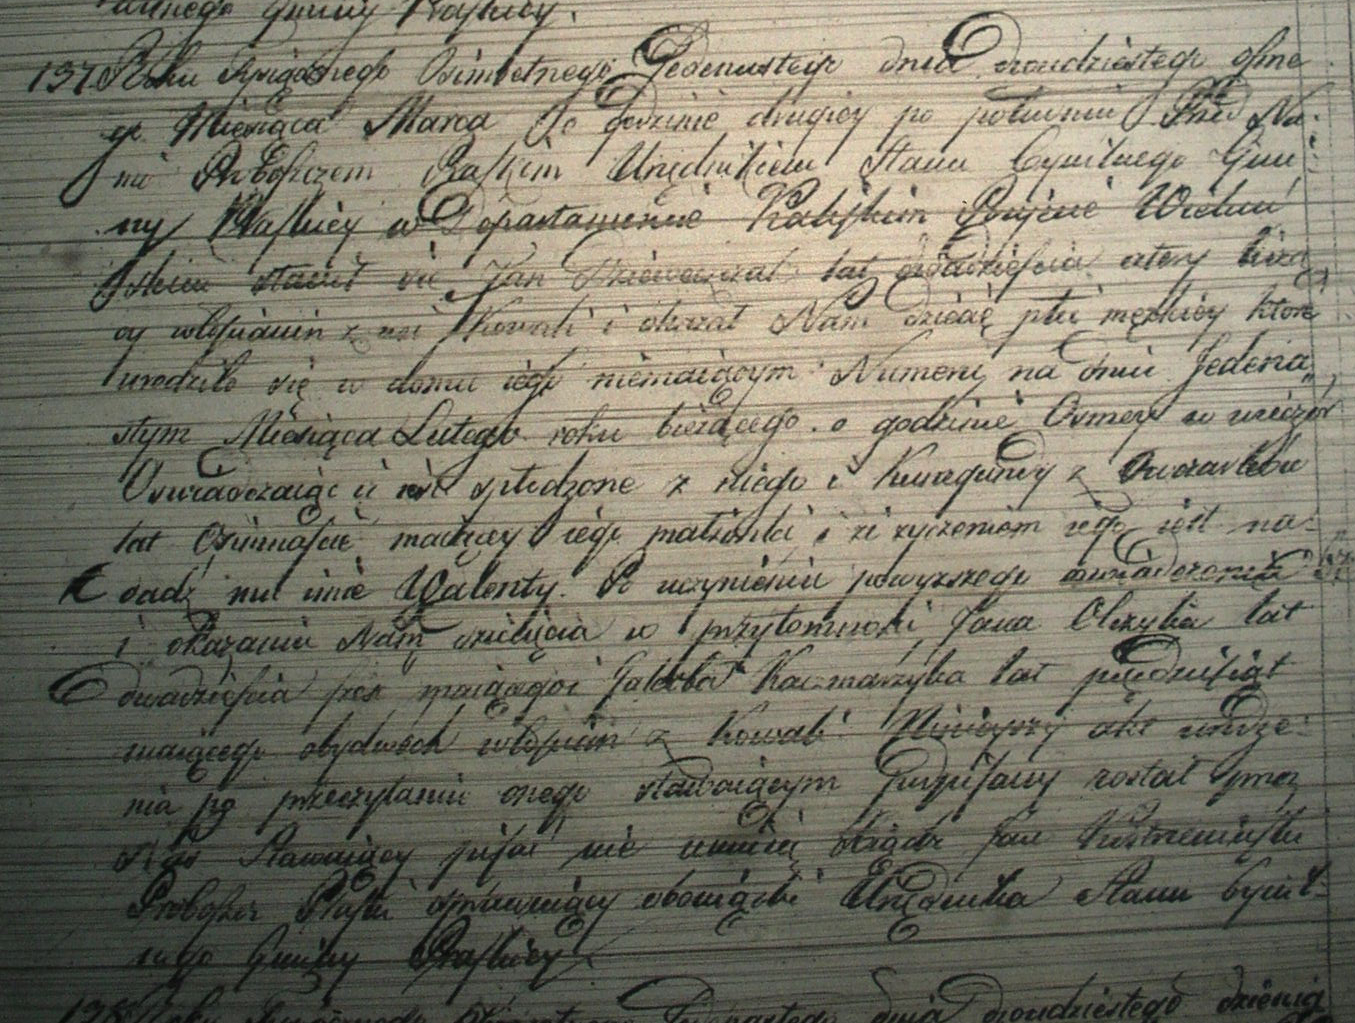 alnego Gminy Praskiey.
137 Roku Tysiącznego Osimsetnego Jedenastego dnia dwudziestego osme
go Miesiąca Marca o godzinie drugiey po południu Przed Na
mi Proboszczem Praskim Urzędnikiem Stanu Cywilnego Gmi
ny Praskiey w Departamencie Kaliskim Powiecie Wieluń
skim stawił się Jan lat dwadzieścia cztery licza
cy włościanin z wsi Kowali i okazał Nam dziecię płci męzkiey które
urodziło się w domu iego niemaiącym Numeru na dniu Jedena
stym Miesiąca Lutego roku bieżącego o godzinie Osmey w wieczór
Oswiadczaiąc iż iest spłodzone z niego i Kunegundy z
lat Osimnaście maiącey iego małżonki i że życzeniem iego iest na
dadź mu imie Walenty. Po uczynieniu powyższego oswiadczenia
i okazaniu Nam dziecięcia w przytomności Jana Olczyka lat
dwadzieścia maiącego i Kaczmarzyka lat pięćdziesiąt
maiącego obydwoch włościan z Kowali Ninieyszy akt urodze
nia po przeczytaniu onego stawaiącym podpisany został przez
Nas Stawaiący pisać nie umieią Xiądz Jan
Proboszcz Praski sprawuiący obowiązki Urzędnika Stanu Cywil
nego Gminy Praskiey
138 Roku Tysiącznego Osimsetnego Jedenastego dnia dwudziestego